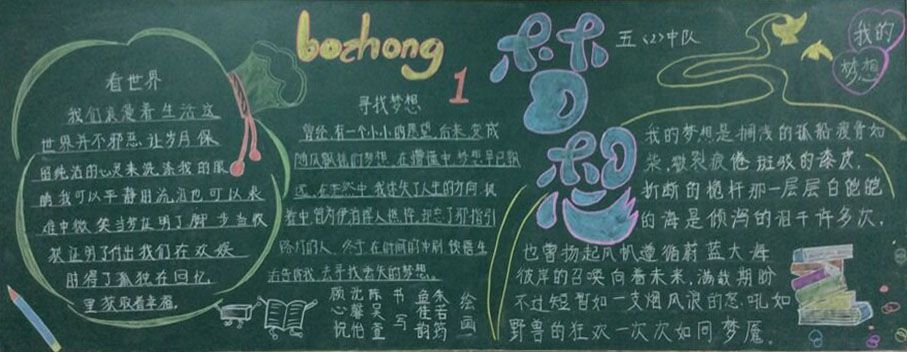 看世界
我们哀愁着生活这
世界并不邪恶让岁月保
留纯洁的心灵来洗涤我的眼
睛我可以平静用流泪也可以艰
难中微笑当梦证明了脚步当收
获证明了付出我们在欢娱
时得了孤独在回忆
里获取着幸福。
bozhong
1
寻找梦想
曾经有一个小小的愿望后来变成
随风飘我们梦想在懵懂中梦想早已飘
远在茫然中我迷失了人生的方向
着中曾为伊消得人憔悴却忘了那指引
路灯的人终于在时间的冲刷
去寻找丢失的梦想。
顾沈陈 书 鱼朱 绘
心馨吴 写 佳若 画
悦怡萱 韵筠
梦想
五(2)中队
我的
梦想
我的梦想是搁浅的孤船瘦骨如
柴皲裂疲倦斑驳的漆皮,
折断的桅杆那一层层白皑皑
的海是倾泻的泪千许多次,
也曾扬起风帆遵循蔚蓝大海
彼岸的召唤向着未来,满载期盼
不过短暂如一支烟风浪的怒吼如
野兽的狂欢一次次如同梦魇